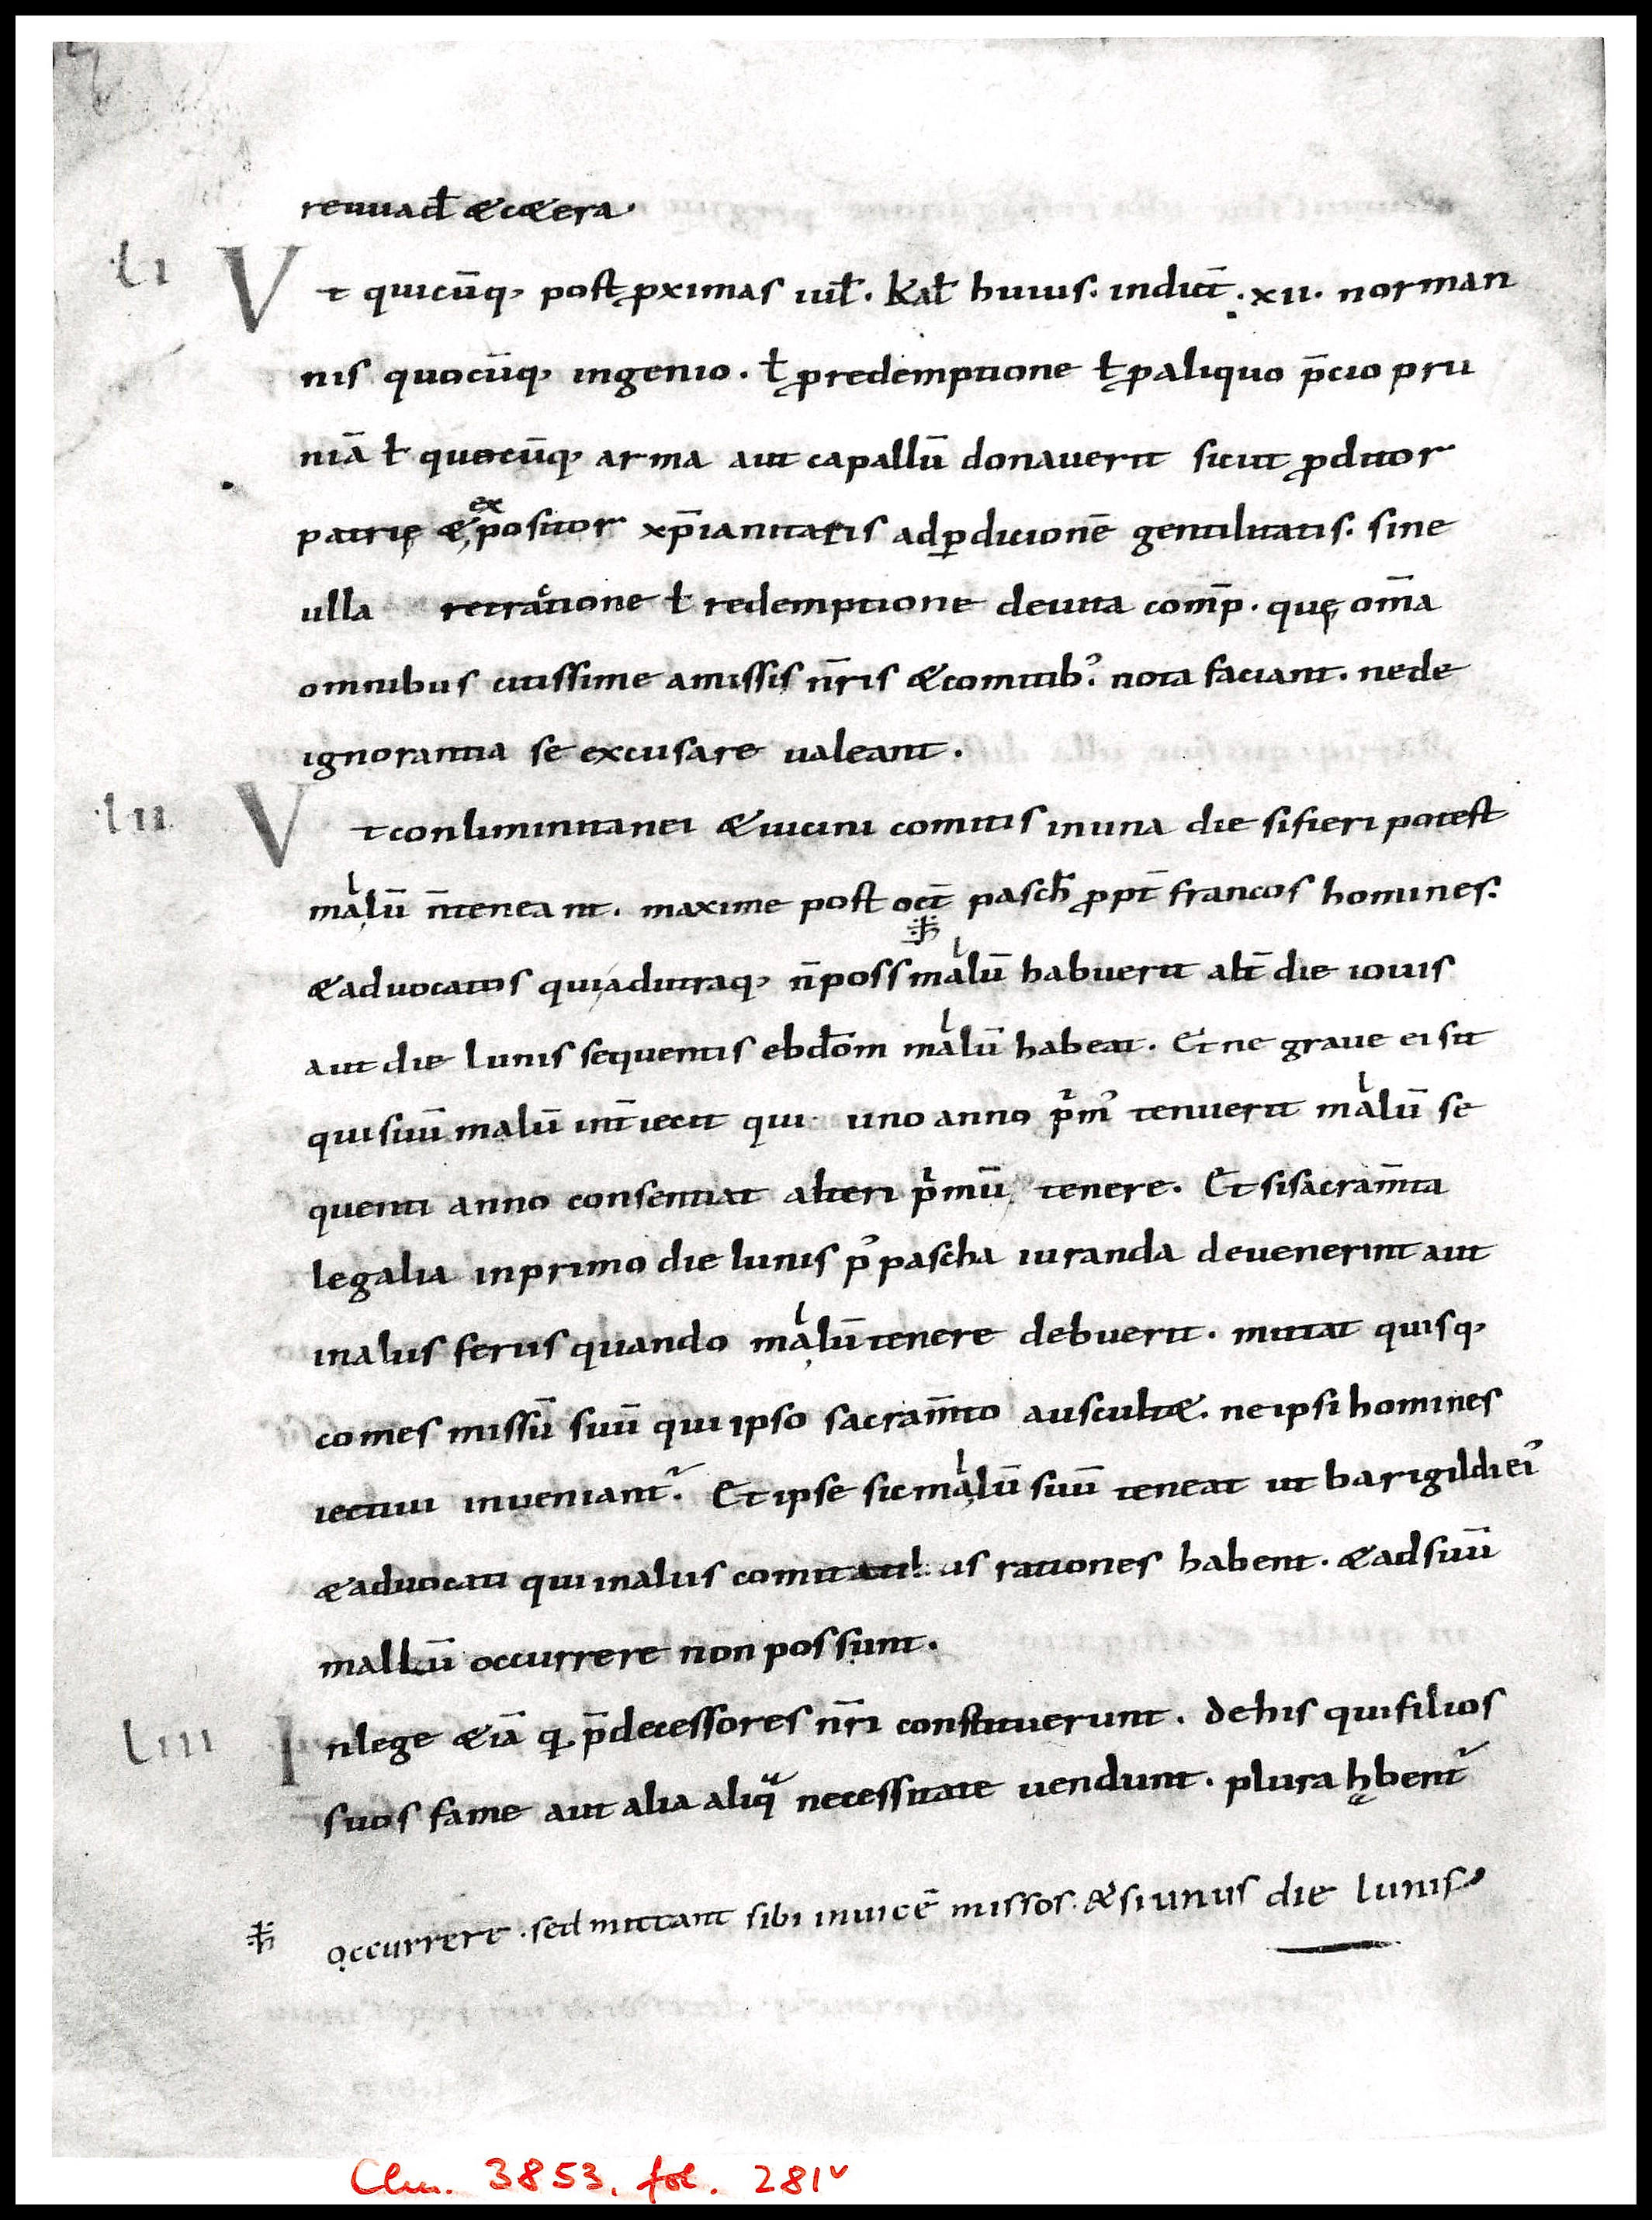 reuuad̄ & c&era.
lı Vt quicūq, post ꝓximas iul̄. kal̄ huius. indict̄. xii. norman
nis quocūq, ingenio. ł ꝓ redemptione ł ꝓ aliquo p̄cio pru
niā ł quocūq, arma aut capallū donauerit sicut ꝓditor
patrię & expositor xp̄ianitatis ad ꝑdicionē gentilitatis. sine
ulla retractione ł redemptione de uita com̄p. quę om̄a
omnibus citissime a missis n̄ris & comitib'. nota faciant. ne de
ignorantia se excusare ualeant.
lıı Vt conliminitanei & uicini comitis in una die si fieri potest
mallū n̄ teneant. maxime post oct̄ pasch̄ ꝓpt̄ francos homines.
& aduocatos qui ad utraq, n̄ poss mallū habuerit alt̄ die iouis
aut die lunis sequentis ebdom̄ mallū habeat. Et ne graue ei sit
qui suū malū int̄iecit qui uno anno prim' tenuerit mallū se
quenti anno consentiat alteri primū tenere. Et si sacram̄ta
legalia in primo die lunis p' pascha iuranda deuenerint aut
in alus feriis quando mallū tenere debuerit. mittat quisq,
comes missū suū qui ipso sacram̄to auscult&. ne ipsi homines
iectiui inueniant'. Et ipse sic mallū suū teneat ut barigildi ei'
& aduocati qui in alus comitatib. us rationes habent. & ad suū
mallū occurrere non possunt.
lııı In lege &iā q̨ p̄decessores n̄ri constituerunt. de his qui filios
suos fame aut alia aliqua necessitate uendunt. plura hębent'
occurrere. sed mittant sibi inuicē missos. & si unus die lunis,
Clm. 3853, fol. 281v